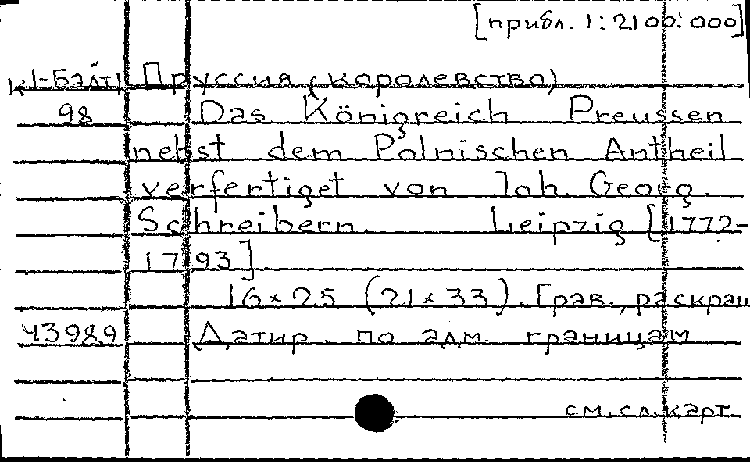 [прибл. 1:2100:000]
К1-Балт1 Пруссия (королевство)
98 Das Königreich Preussen
nebst dem Polnischen Antheil
verfertiget von Joh. Georg.
Schreibern. Leipzig [1772-
1793]
16×25 (21×33). Грав., раскраш
43989 Датир. по адм. границам
см.сл.карт.